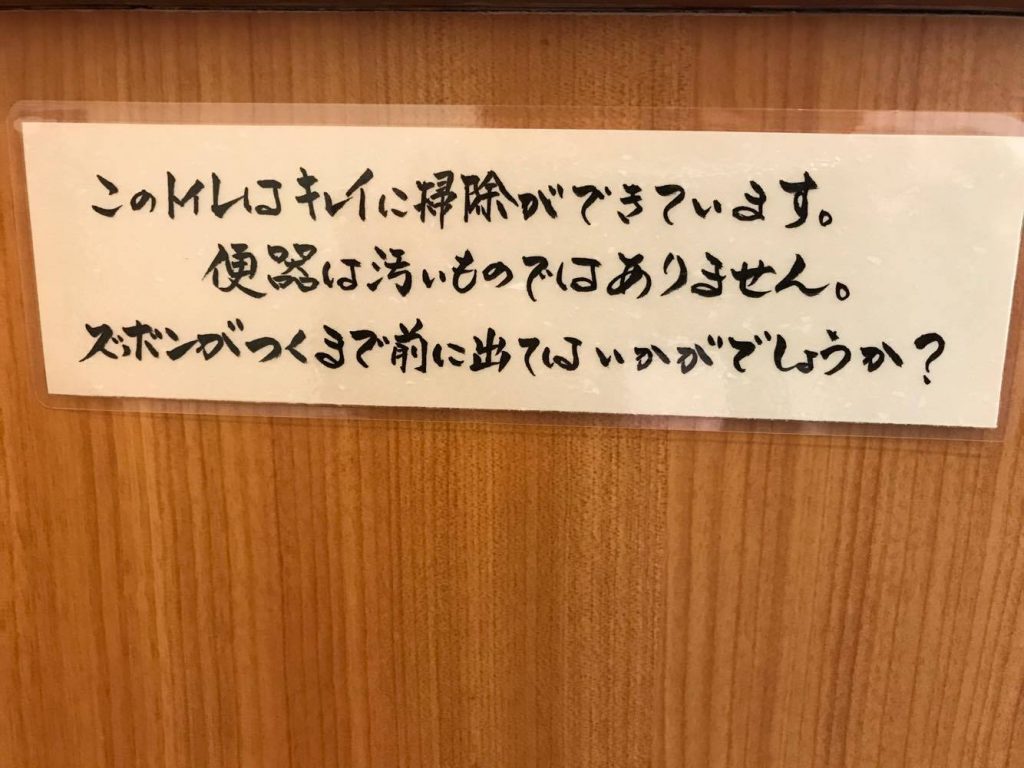 このトイレはキレイに掃除ができています。
便器は汚いものではありません。
ズボンがつくまで前に出てはいかがでしょうか？